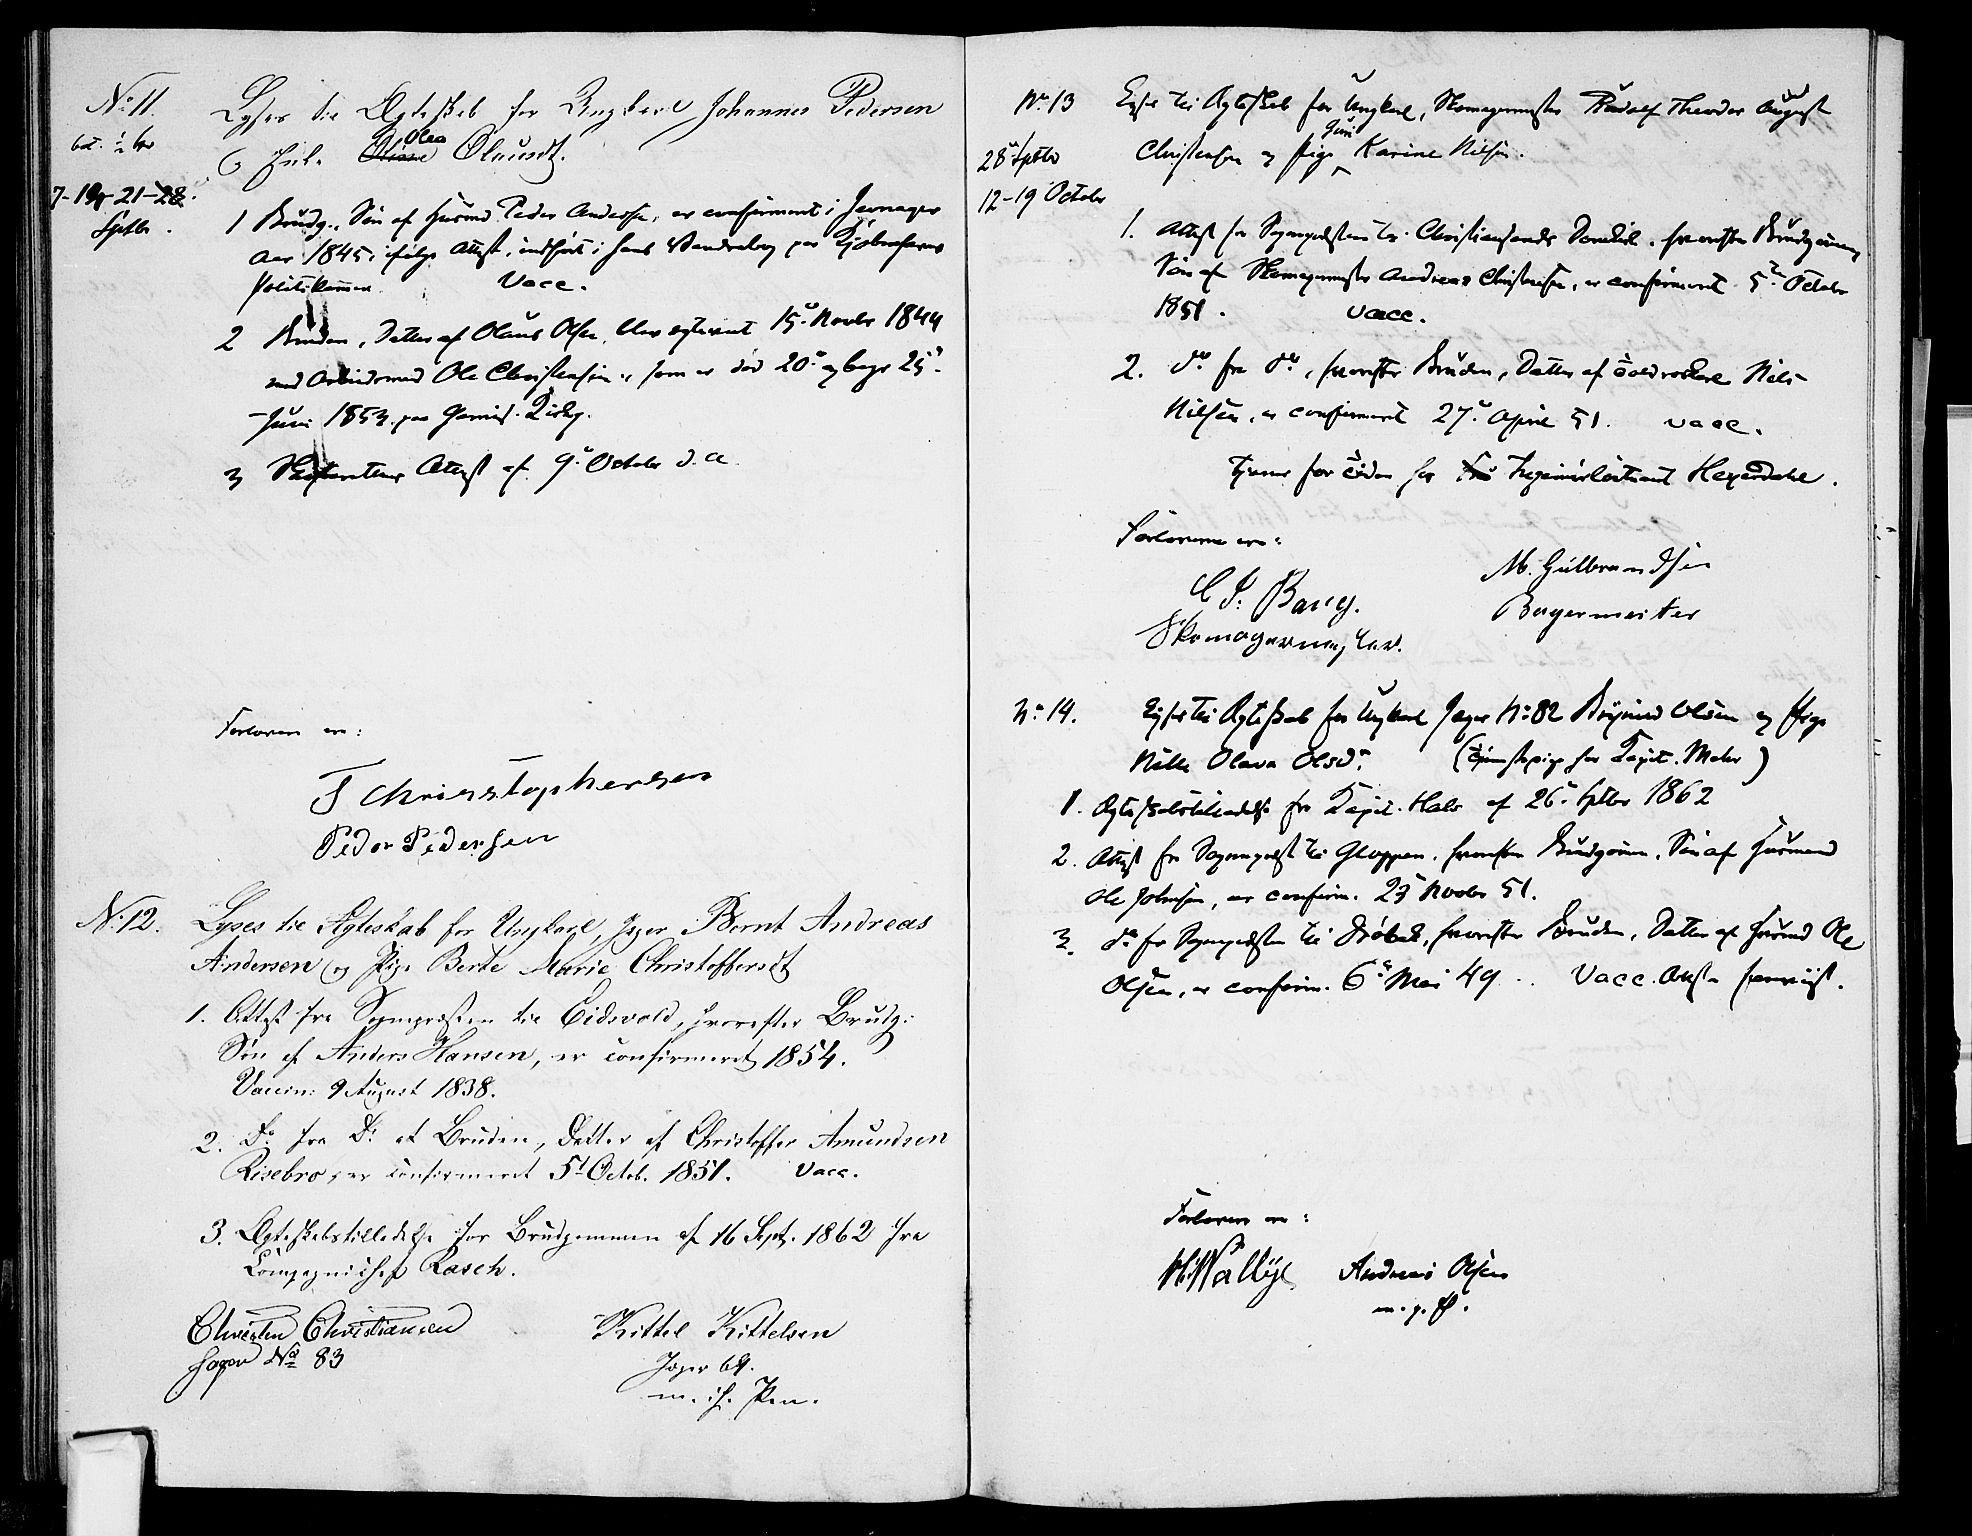 No 11.
bet. ½ kr
7-14-21-28.
Septbr.
Lyses til Ægteskab for Ungkarl Johannes Pedersen
og Enke Olea Olausdt.
1 Brudg., Søn af Husmd. Peder Andersen, er confirmeret i Jevnager
Aar 1845, ifølge Attest, indført i hans Vandrebog paa Kjøbenhavns
Politikammer. Vacc.
2 Bruden, Datter af Olaus Olsen, blev egteviet 15de Novbr 1844
med Arbeidsmand Ole Christensen, som er død 20de og begr. 25de
Juni 1853 paa Garnis. Kirkeg.
3 Skifterettens Attest af 9de October d. A.
Forlovere ere:
T Christophersen
Peder Pedersen
No 12.
Lyses til Ægteskab for Ungkarl, Jæger Bernt Andreas
Andersen og Pige Berte Marie Christoffersdt
1. Attest fra Sognepræsten til Eidsvold, hvorefter Brudg:
Søn af Anders Hansen, er confirmeret 1854.
Vaccin: 9 August 1838.
2. Do fra Do at Bruden, Datter af Christoffer Amundsen
Risebro, er confirmeret 5t Octob. 1851. Vacc.
3. Ægteskabstilladelse for Brudgommen af 16 Sept. 1862 fra
Compagnichef Rasch.
Christen Christiansen
Jæger No 83
Kittel Kittelsen
Jæger 69.
m. i. h. Pen.
No 13
28de Septbr
12-19 October
Lyses til Ægteskab for Ungkarl, Skomagermester Rudolf Theodor August
Christensen og Pige Guri Karine Nilsen.
1. Attest fra Sognepræsten til Christiansands Domkirk. hvorefter Brudgommen,
Søn af Skomagermester Andreas Christensen, er confirmeret 5te October
1851. Vacc.
2. Do fra Do, hvorefter Bruden, Datter af Nils
Nilsen, er confirmeret 27de April 51. Vacc.
tjener for Tiden hos Ingeniørlieutnant Heyerdahl.
Forloverne ere:
C P. Bang.
Skomagermester.
M. Gulbrandsen
Bagermeister
No 14.
Lyses til Ægteskab for Ungkarl Jæger No 82 Olsen og Pige
Nille Olava Olsd. (Tjenestepige hos Kapit. Mohr)
1. Ægteskabstilladelse fra Kapit. Hals af 26de Septbr 1862
2. Attest fra Sognepræst til Gloppen, hvorefter Brudgommen, Søn af Husmand
Ole Johnsen, er confirm. 23de Novbr 51.
3. Do fra Sognepræsten til Drøbak, hvorefter Bruden, Datter af Husmd Ole
Olsen, er confirm. 6te Mai 49. Vacc. Attester foreviist.
Forlovere ere:
Andreas Olsen
m. p. P.